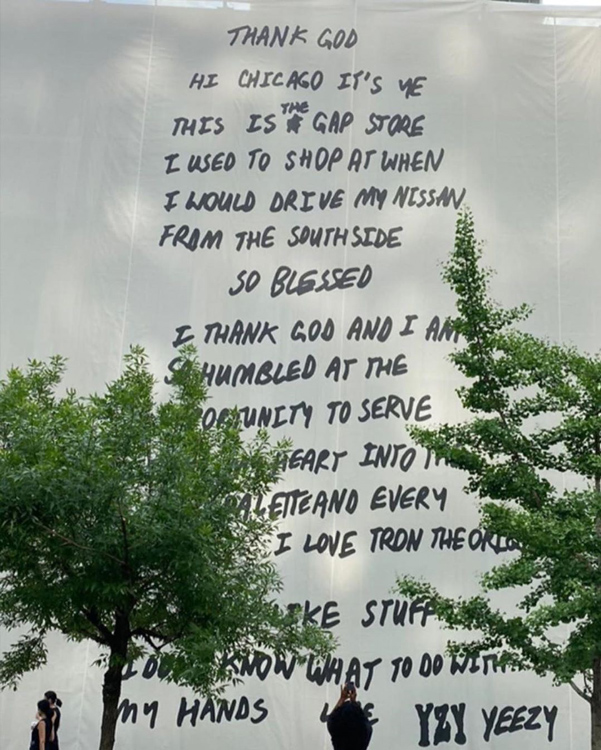 THANK GOD
HI CHICAGO IT'S YE
THIS IS THE GAP STORE
I USED TO SHOP AT WHEN
I WOULD DRIVE MY NISSAN
FROM THE SOUTHSIDE
SO BLESSED
I THANK GOD AND I AM
SO HUMBLED AT THE
TO SERVE
HEART INTO
AND EVERY
I LOVE TRON THE
STUFF
KNOW WHAT TO DO WITH
MY HANDS YZY YEEZY